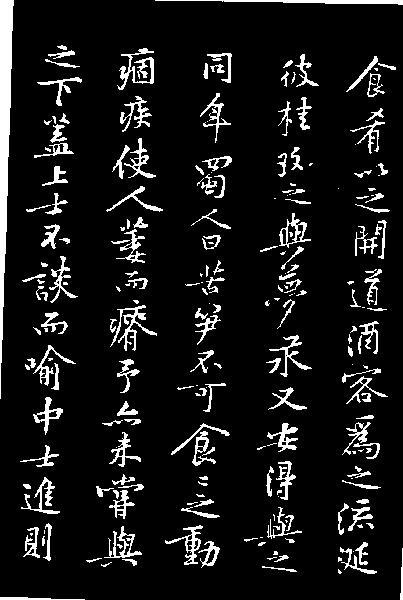 食肴以之開道酒客爲之流涎
彼桂玫之與夢永又安得與之
同年蜀人曰苦笋不可食食之動
痼疾使人萎而瘠予亦未嘗與
之下蓋上士不談而喻中士進則